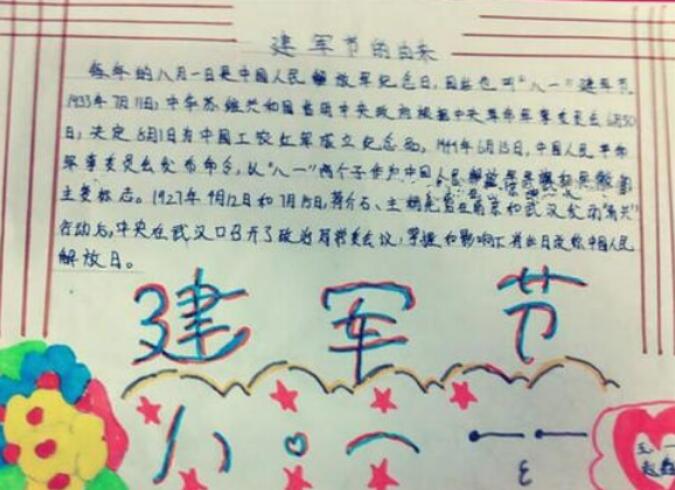 建军节的由来
每年的八月一日是中国人民解放军纪念日,因此也叫“八一”建军节
1933年7月11日,中华苏维共和国临时中央政府根据中央革命军事委员会6月30
日,决定8月1日为中国工农红军成立纪念日。1949年6月15日,中国人民革命
军事委员会发布命令,以“八一”两个字作为中国人民解放军军旗和军徽的
主要标志。1927年4月12日和7月15日,蒋介石、汪精卫在南京和武汉发动“清共”
行动后,中央在武汉口召开了政治局常委会议,
和影响下将此日改称中国人民
解放日。
建军节
八一